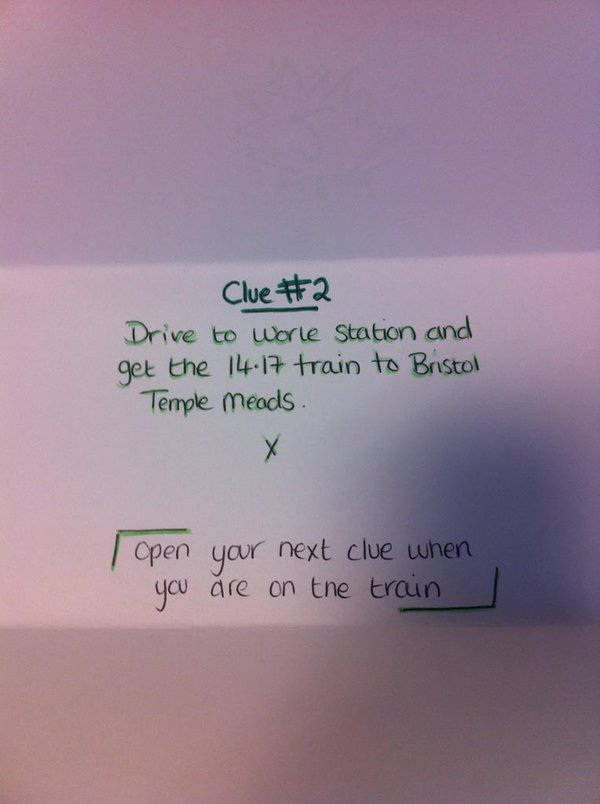 Clue #2
Drive to Worle Station and
get the 14.17 train to Bristol
Temple Meads.
X
Open your next clue when
you are on the train